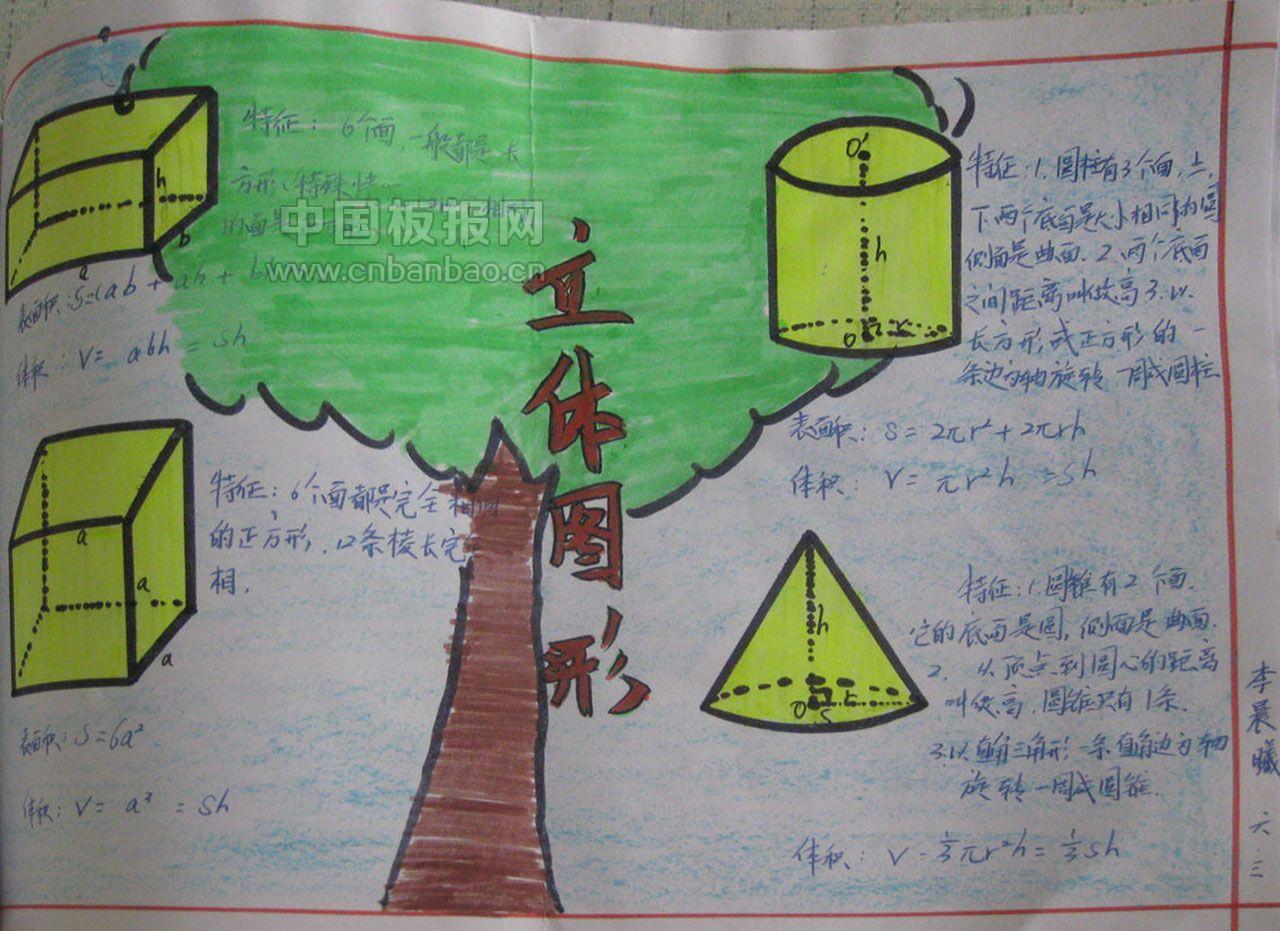 立体图形
特征：6个面，一般都是长
方形（特殊情
的面是
表面积：S=(ab + ah + bh
体积：V= abh = Sh
特征：6个面都是完全相同
的正方形，12条棱长完
相.
表面积：S=6a²
体积：V= a³ = Sh
特征：1.圆柱有3个面，上、
下两个底面是大小相同的圆
侧面是曲面. 2.两个底面
之间距离叫做高 3.以
长方形或正方形的一
条边为轴旋转一周成圆柱
表面积：S=2πr²+2πrh
体积：V=πr²h =Sh
特征：1.圆锥有2个面.
它的底面是圆，侧面是曲面.
2. 从顶点到圆心的距离
叫做高.圆锥只有1条.
3.以直角三角形一条直角边为轴
旋转一周成圆锥.
体积：V=⅓πr²h=⅓Sh
h
b
a
a
a
a
O'
h
O
r
h
O
r
S
李晨曦 六.三
中国板报网
www.cnbanbao.cn